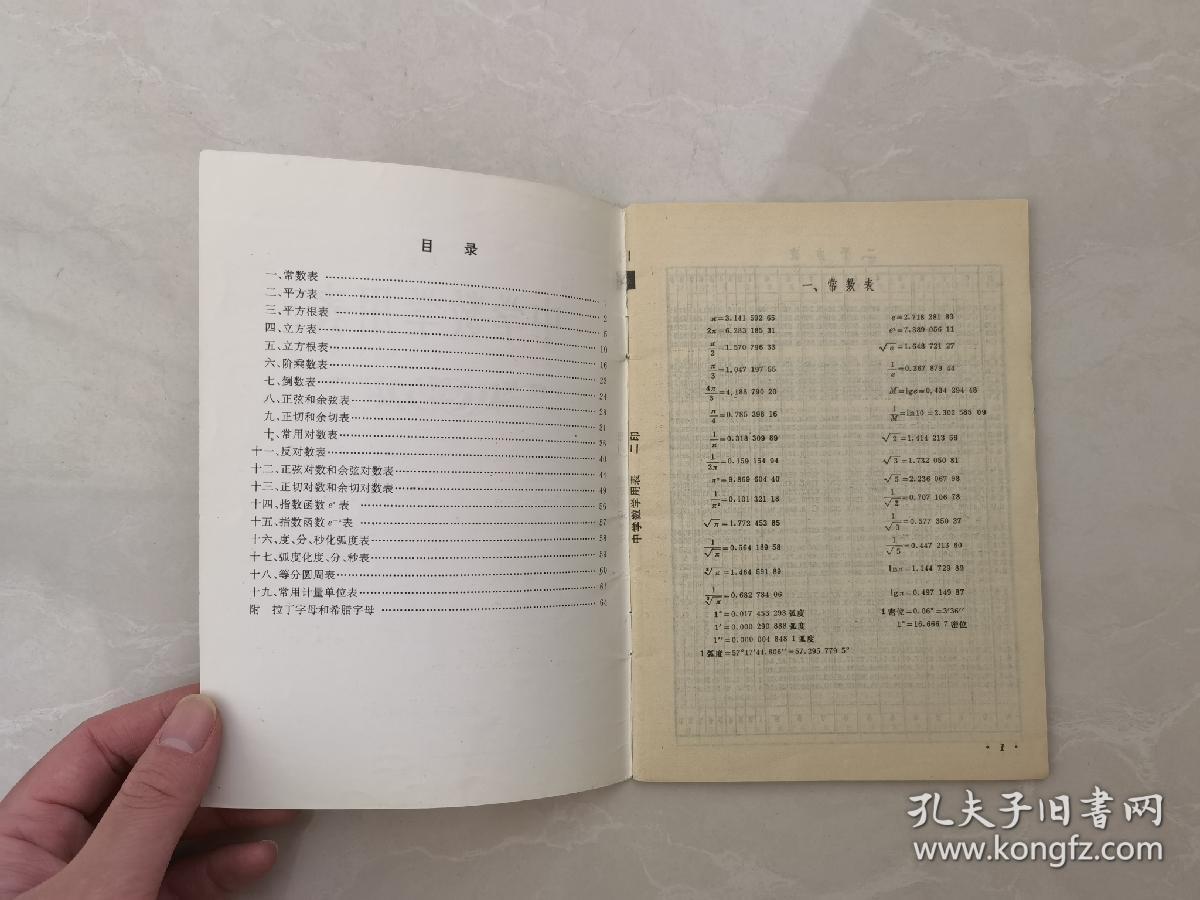 目 录
一、常数表 1
二、平方表 2
三、平方根表 5
四、立方表 10
五、立方根表 16
六、阶乘数表
七、倒数表 24
八、正弦和余弦表
九、正切和余切表 31
十、常用对数表
十一、反对数表 40
十二、正弦对数和余弦对数表 44
十三、正切对数和余切对数表 49
十四、指数函数 eˣ 表 56
十五、指数函数 e⁻ˣ 表 57
十六、度、分、秒化弧度表 58
十七、弧度化度、分、秒表
十八、等分圆周表 60
十九、常用计量单位表
附 拉丁字母和希腊字母 64
中学数学用表 二印
一、常数表
π=3.141 592 65 e=2.718 281 83
2π=6.283 185 31 e²=7.389 056 11
π/2=1.570 796 33 √e=1.648 721 27
π/3=1.047 197 55 1/e=0.367 879 44
4π/3=4.188 790 20 M=lge=0.434 294 48
π/4=0.785 398 16 1/M=ln10=2.302 585 09
1/π=0.318 309 89 √2=1.414 213 56
1/2π=0.159 154 94 √3=1.732 050 81
π²=9.869 604 40 √5=2.236 067 98
1/π²=0.101 321 18 1/√2=0.707 106 78
√π=1.772 453 85 1/√3=0.577 350 27
1/√π=0.564 189 58 1/√5=0.447 213 60
∛π=1.464 591 89 lnπ=1.144 729 89
1/∛π=0.682 784 06 lgπ=0.497 149 87
1°=0.017 453 293 弧度 1密位=0.06°=3′36″
1′=0.000 290 888 弧度 1°=16.666 7密位
1″=0.000 004 848 1 弧度
1弧度=57°17′44.806″=57.295 779 5°
· 1 ·
孔夫子旧书网
www.kongfz.com